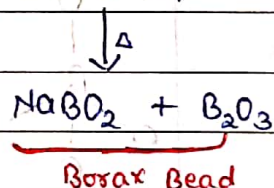 Δ
NaBO₂ + B₂O₃
Borax Bead